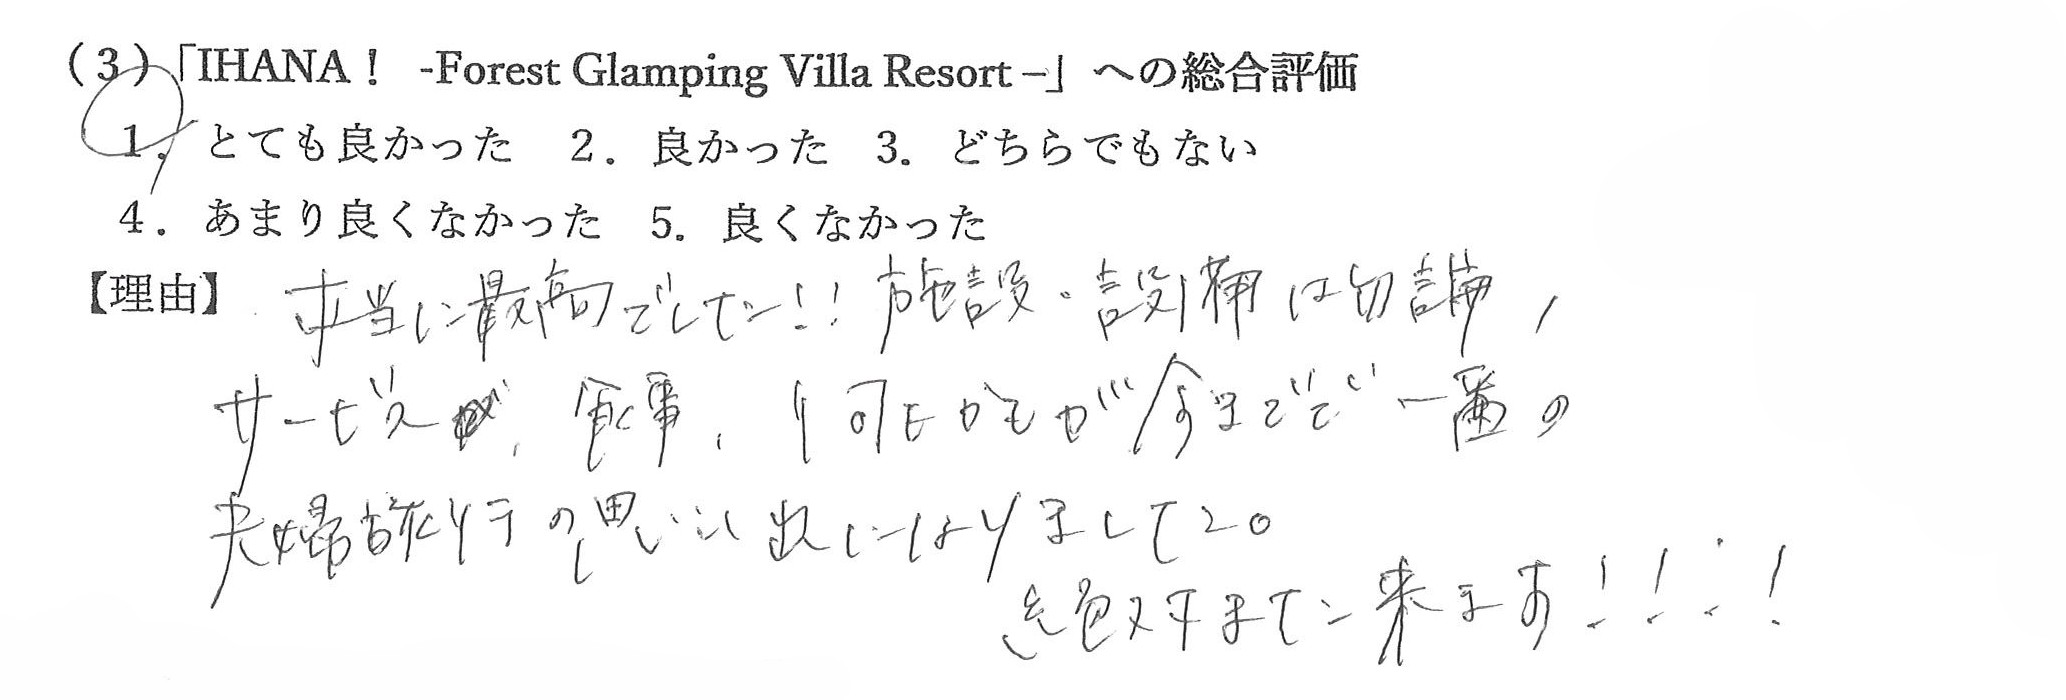 (3)「IHANA！ -Forest Glamping Villa Resort－」への総合評価
1．とても良かった 2．良かった 3．どちらでもない
4．あまり良くなかった 5．良くなかった
【理由】 本当に最高でした!! 施設・設備は勿論,
サービス, 食事, 何もかもが今までで一番の
夫婦旅行の思い出になりました。
絶対また来ます!!!!